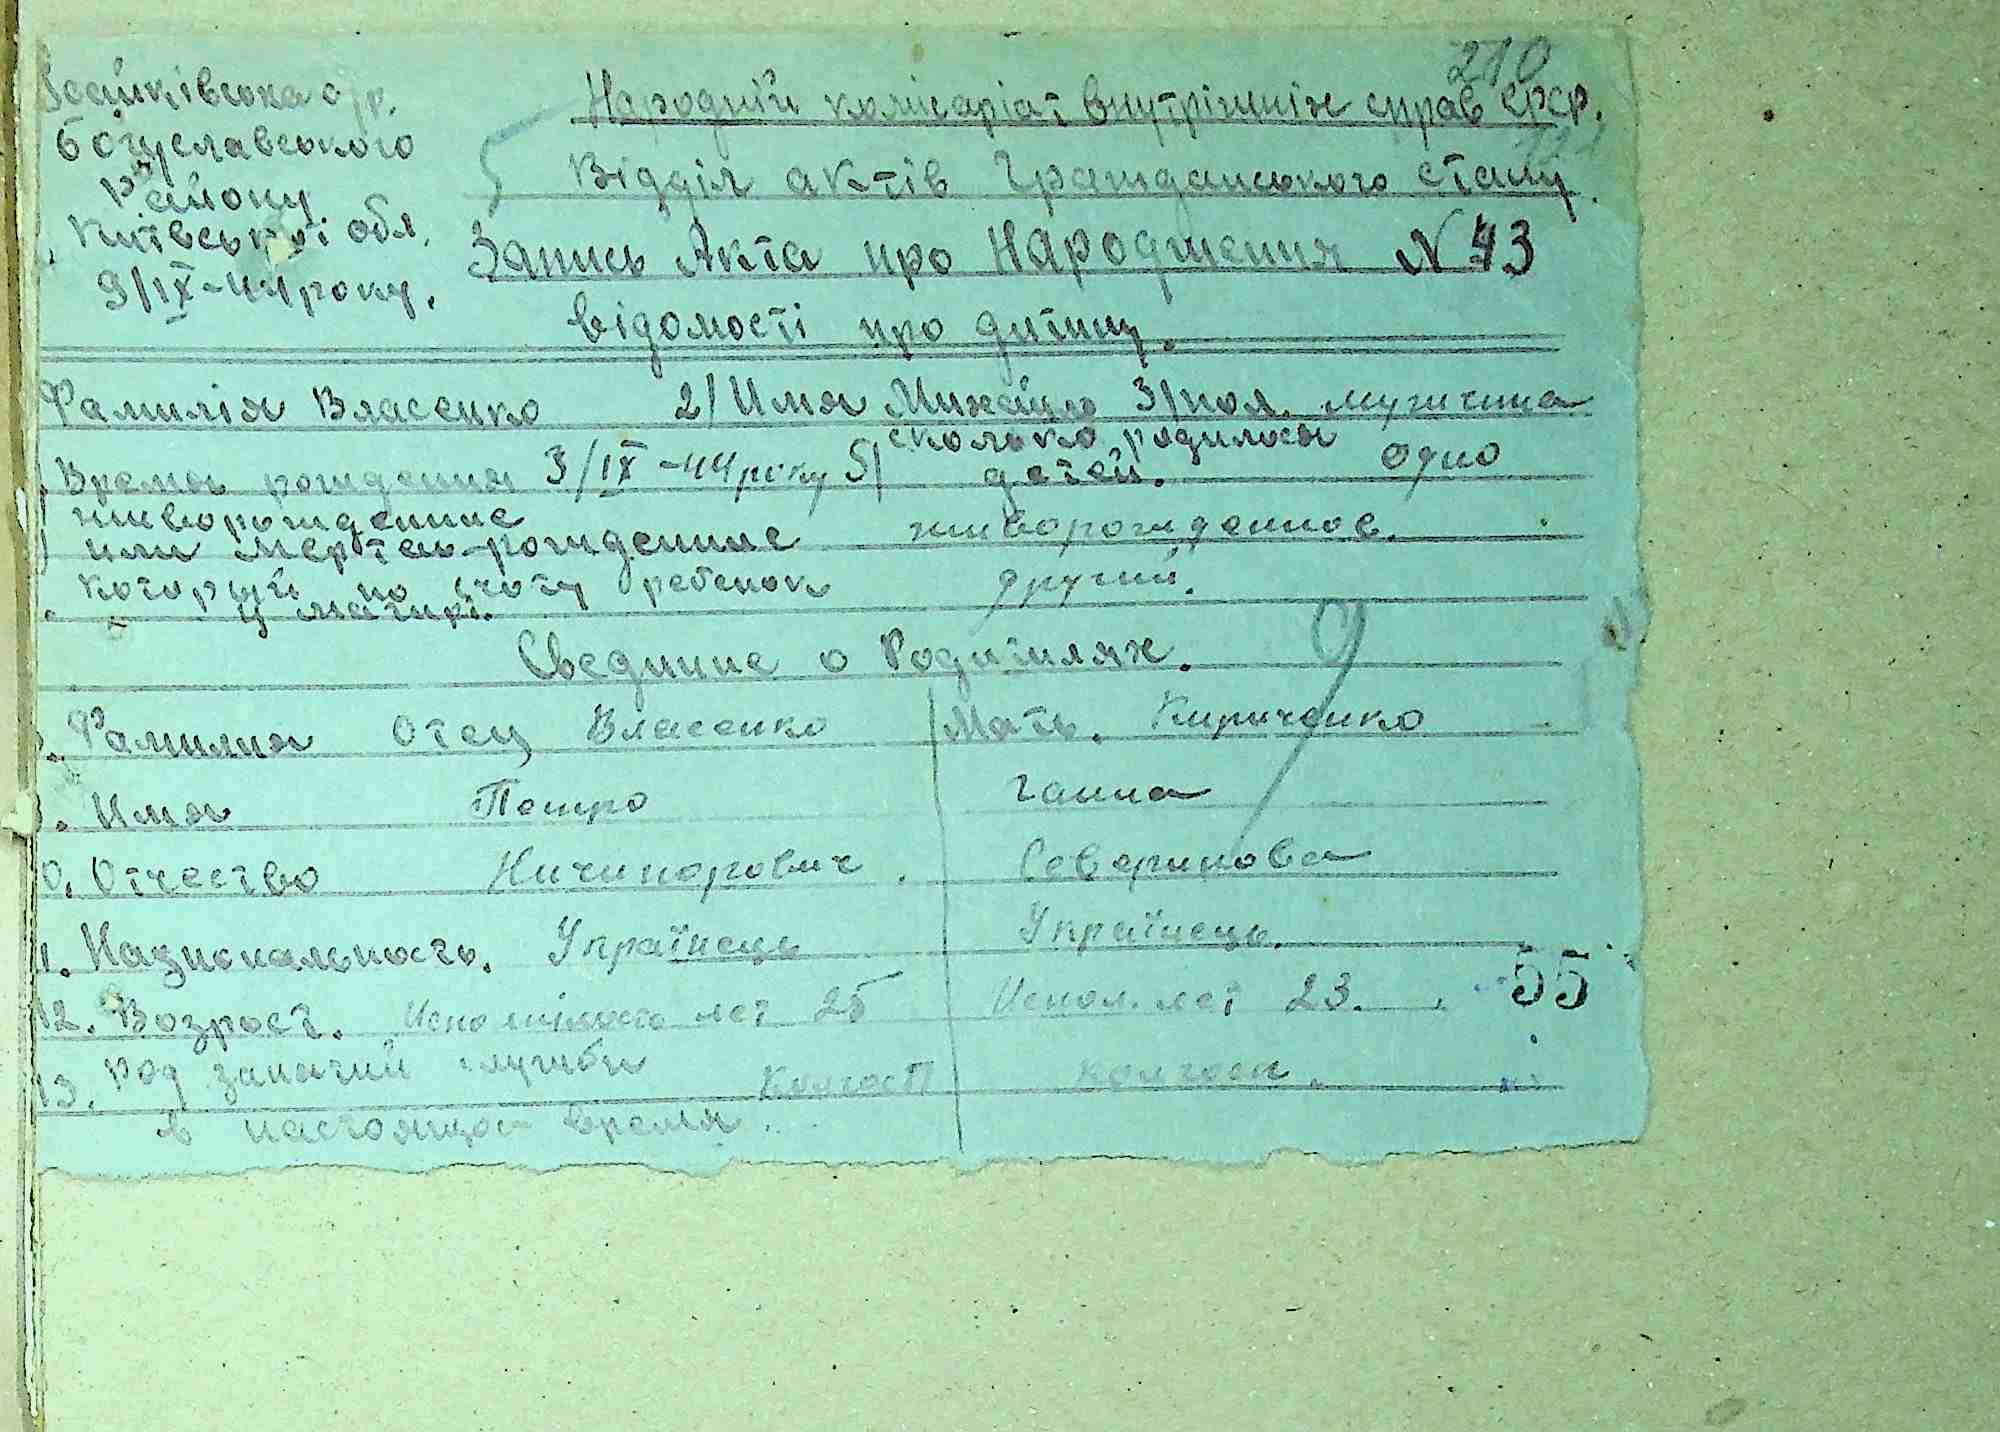 Ісайківська с/р.
Богуславського
району
Київської обл.
9/ІХ-44 року.
210
Народній комісаріат внутрішніх справ СРСР.
Відділ актів Гражданського стану.
Запись Акта про Народження N 43
відомості про дитину.
Фамилія Власенко 2/ Имя Михайло 3/ пол. мужчина
Время рождения 3/ІХ-44 року 5/ сколько родилось детей. одно
живорожденние
или мертво-рожденние живорожденное.
который по счоту ребенок другий.
у матирі.
Свединие о Родитилях.
Фамилия Отец Власенко Мать. Кириченко
. Имя Петро Ганна
0. Отчество Ничипорович. Северинова
1. Национальность. Українець Українець.
12. Возраст. Исполнілось лет 25 Испол. лет 23.
55
13. Род занатий службы колгосп колгосп.
в настоящое время